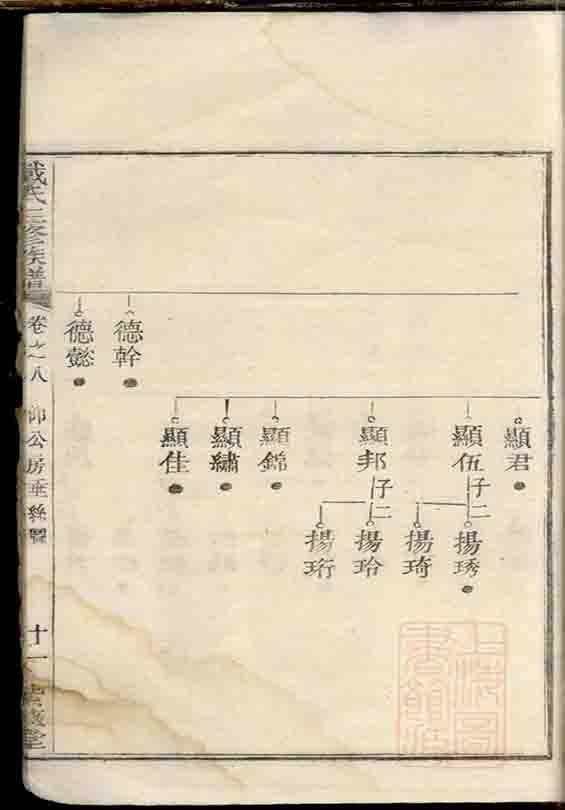 顯君
顯伍 子二
揚琇
揚琦
顯邦 子二
揚玲
揚珩
顯錦
顯繡
顯佳
德幹
德懿
戴氏三修族譜
卷之八
仰公房垂絲圖
十一